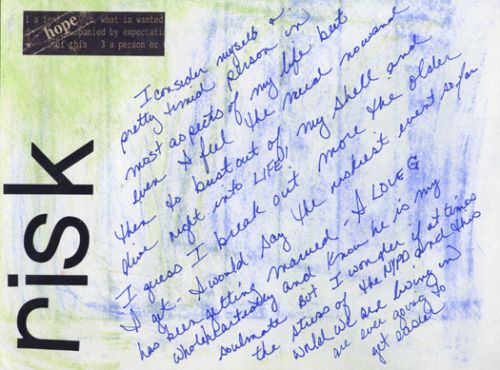 what is wanted
hope
panied by expectati
of this 3 a person or
risk
I consider myself a
pretty timid person in
most aspects of my life but
even I feel the need now and
then to bust out of my shell and
dive right into LIFE,
I guess I break out more the older
I get - I would say the riskiest event so far
has been getting married - I LOVE G
wholeheartedly and know he is my
soulmate BUT I wonder if at times
the stress of the NYPD and this
world we are living in
are ever going to
get easier